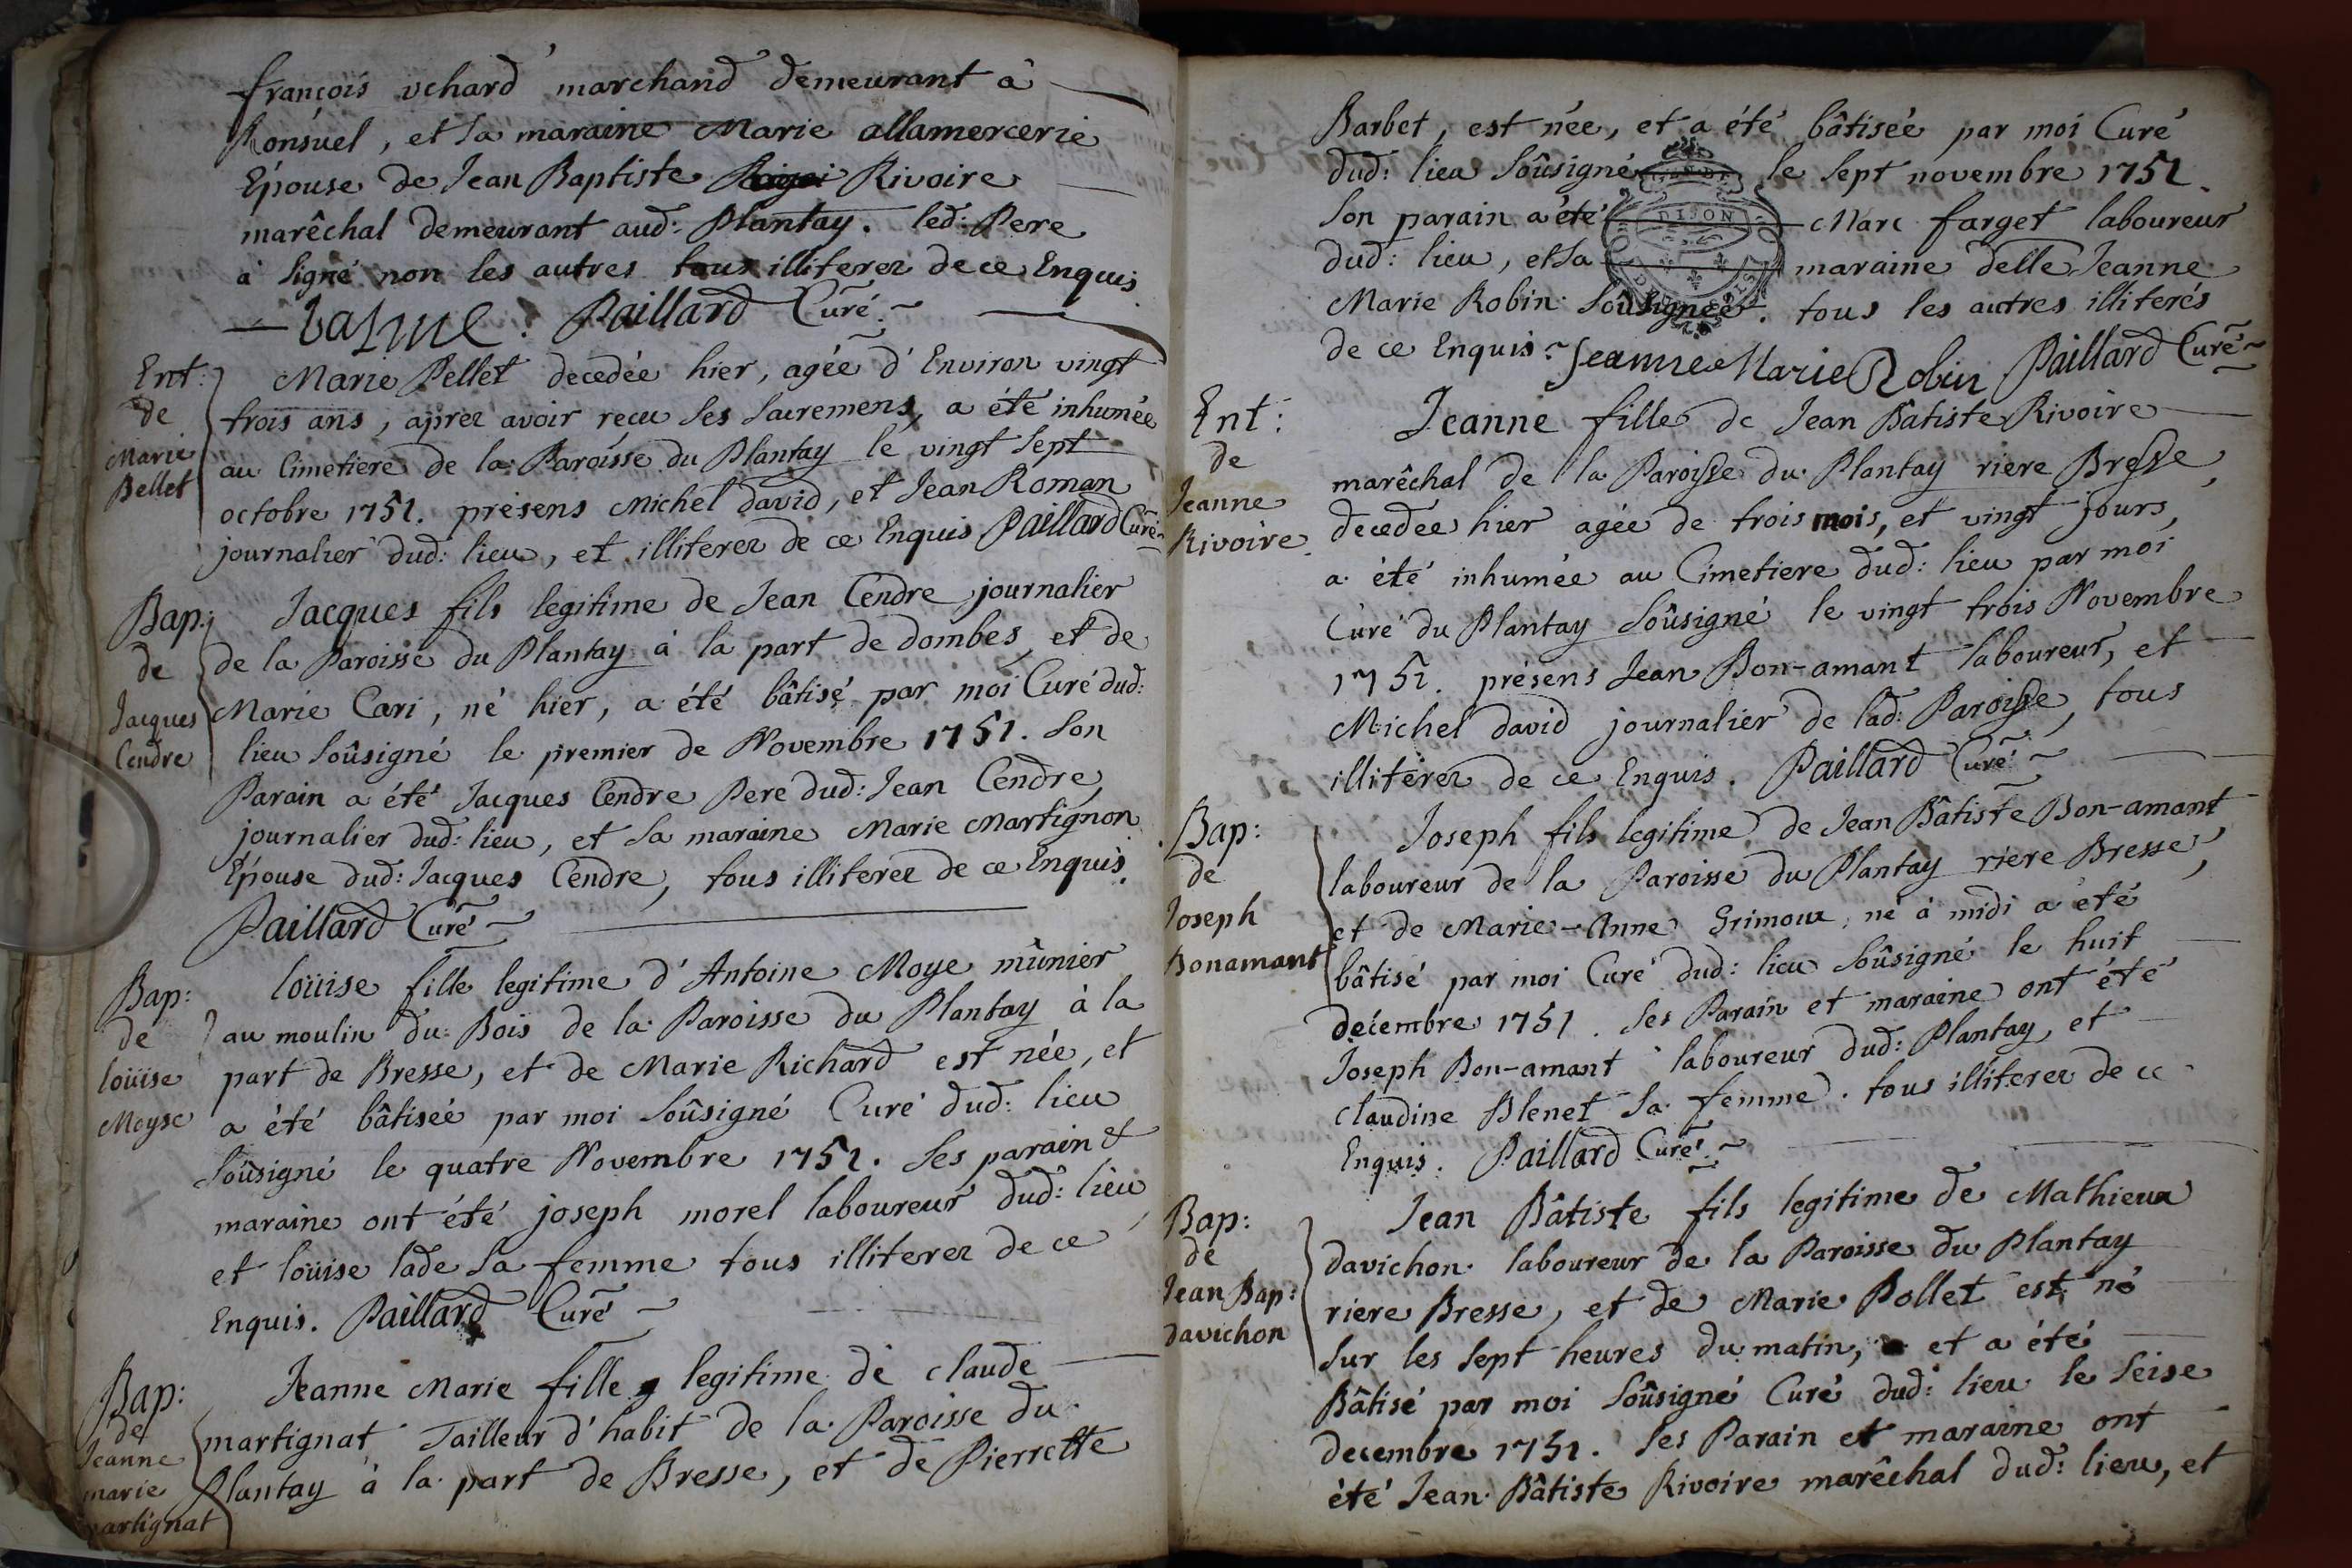 françois uchard marchand demeurant à
Ronsuel, et sa maraine Marie allamercerie
Épouse de Jean Baptiste Rivoire
marêchal demeurant aud: Plantay. led: Pere
a signé non les autres tous illiterez de ce Enquis
Paillard Curé
Ent: de Marie Pellet
Marie Pellet decedée hier, agée d'Environ vingt
trois ans, aprez avoir recu ses sacremens, a été inhumée
au Cimetiere de la Paroisse du Plantay le vingt sept
octobre 1751. présens Michel david, et Jean Roman
journalier dud: lieu, et illiterez de ce Enquis Paillard Curé
Bap: de Jacques Cendre
Jacques fils legitime de Jean Cendre journalier
de la Paroisse du Plantay à la part de dombes, et de
Marie Cari, né hier, a été bâtisé par moi Curé dud:
lieu soûsigné le premier de Novembre 1751. Son
Parain a été Jacques Cendre Pere dud: Jean Cendre,
journalier dud: lieu, et sa maraine Marie Martignon
Épouse dud: Jacques Cendre, tous illiterez de ce Enquis.
Paillard Curé
Bap: de loüise Moyse
loüise fille legitime d'Antoine Moye mûnier
au moulin du Bois de la Paroisse du Plantay à la
part de Bresse, et de Marie Richard est née, et
a été bâtiseé par moi soûsigné Curé dud: lieu
soûsigné le quatre Novembre 1751. Ses parain &
maraine ont été joseph morel laboureur dud: lieu,
et loüise lade sa femme tous illiterez de ce
Enquis. Paillard Curé
Bap: de Jeanne marie martignat
Jeanne Marie fille legitime de claude
martignat Tailleur d'habit de la Paroisse du
Plantay à la part de Bresse, et de Pierrette
Barbet, est née, et a été bâtiseé par moi Curé
dud: lieu soûsigné le sept novembre 1751.
DIJON
Son parain a été Marc farget laboureur
dud: lieu, et sa maraine delle Jeanne
Marie Robin soûsignée. tous les autres illiterés
de ce Enquis. Jeanne Marie Robin Paillard Curé
Ent: de Jeanne Rivoire
Jeanne fille de Jean Bâtiste Rivoire
marêchal de la Paroisse du Plantay riere Bresse,
decedée hier agée de trois mois, et vingt jours,
a été inhumée au Cimetiere dud: lieu par moi
Curé du Plantay soûsigné le vingt trois Novembre
1751. présens Jean Bon-amant laboureur, et
Michel david journalier de lad: Paroisse, tous
illiterez de ce Enquis. Paillard Curé
Bap: de Joseph Bonamant
Joseph fils legitime de Jean Bâtiste Bon-amant
laboureur de la Paroisse du Plantay riere Bresse,
et de Marie-Anne Grimoux, né à midi a été
bâtisé par moi Curé dud: lieu soûsigné le huit
decembre 1751. Ses Parain et maraine ont été
Joseph Bon-amant laboureur dud: Plantay, et
claudine Blenet sa femme. tous illiterez de ce
Enquis. Paillard Curé
Bap: de Jean Bap: davichon
Jean Bâtiste fils legitime de Mathieux
davichon laboureur de la Paroisse du Plantay
riere Bresse, et de Marie Pollet est né
sur les sept heures du matin, et a été
Bâtisé par moi soûsigné Curé dud: lieu le seise
decembre 1751. Ses Parain et maraine ont
été Jean Bâtiste Rivoire marêchal dud: lieu, et